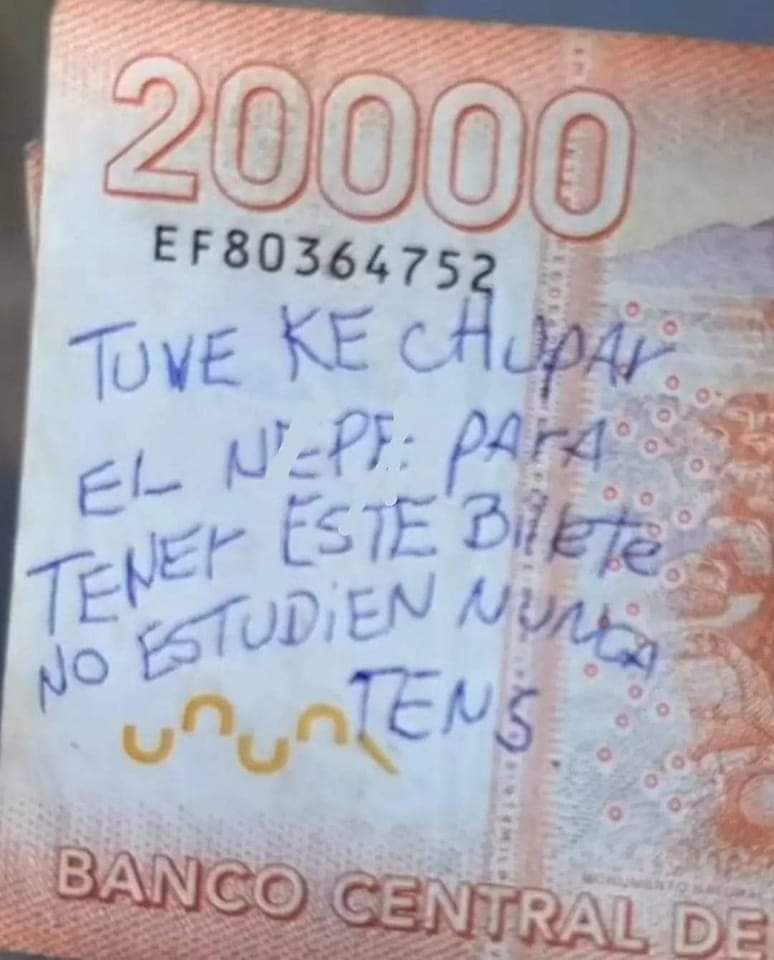 20000
EF80364752
TUVE KE CHUPAr
EL NEPE PArA
TENEr ESTE BiLLETe
NO ESTUDiEN NUNCA
TENS
BANCO CENTRAL DE